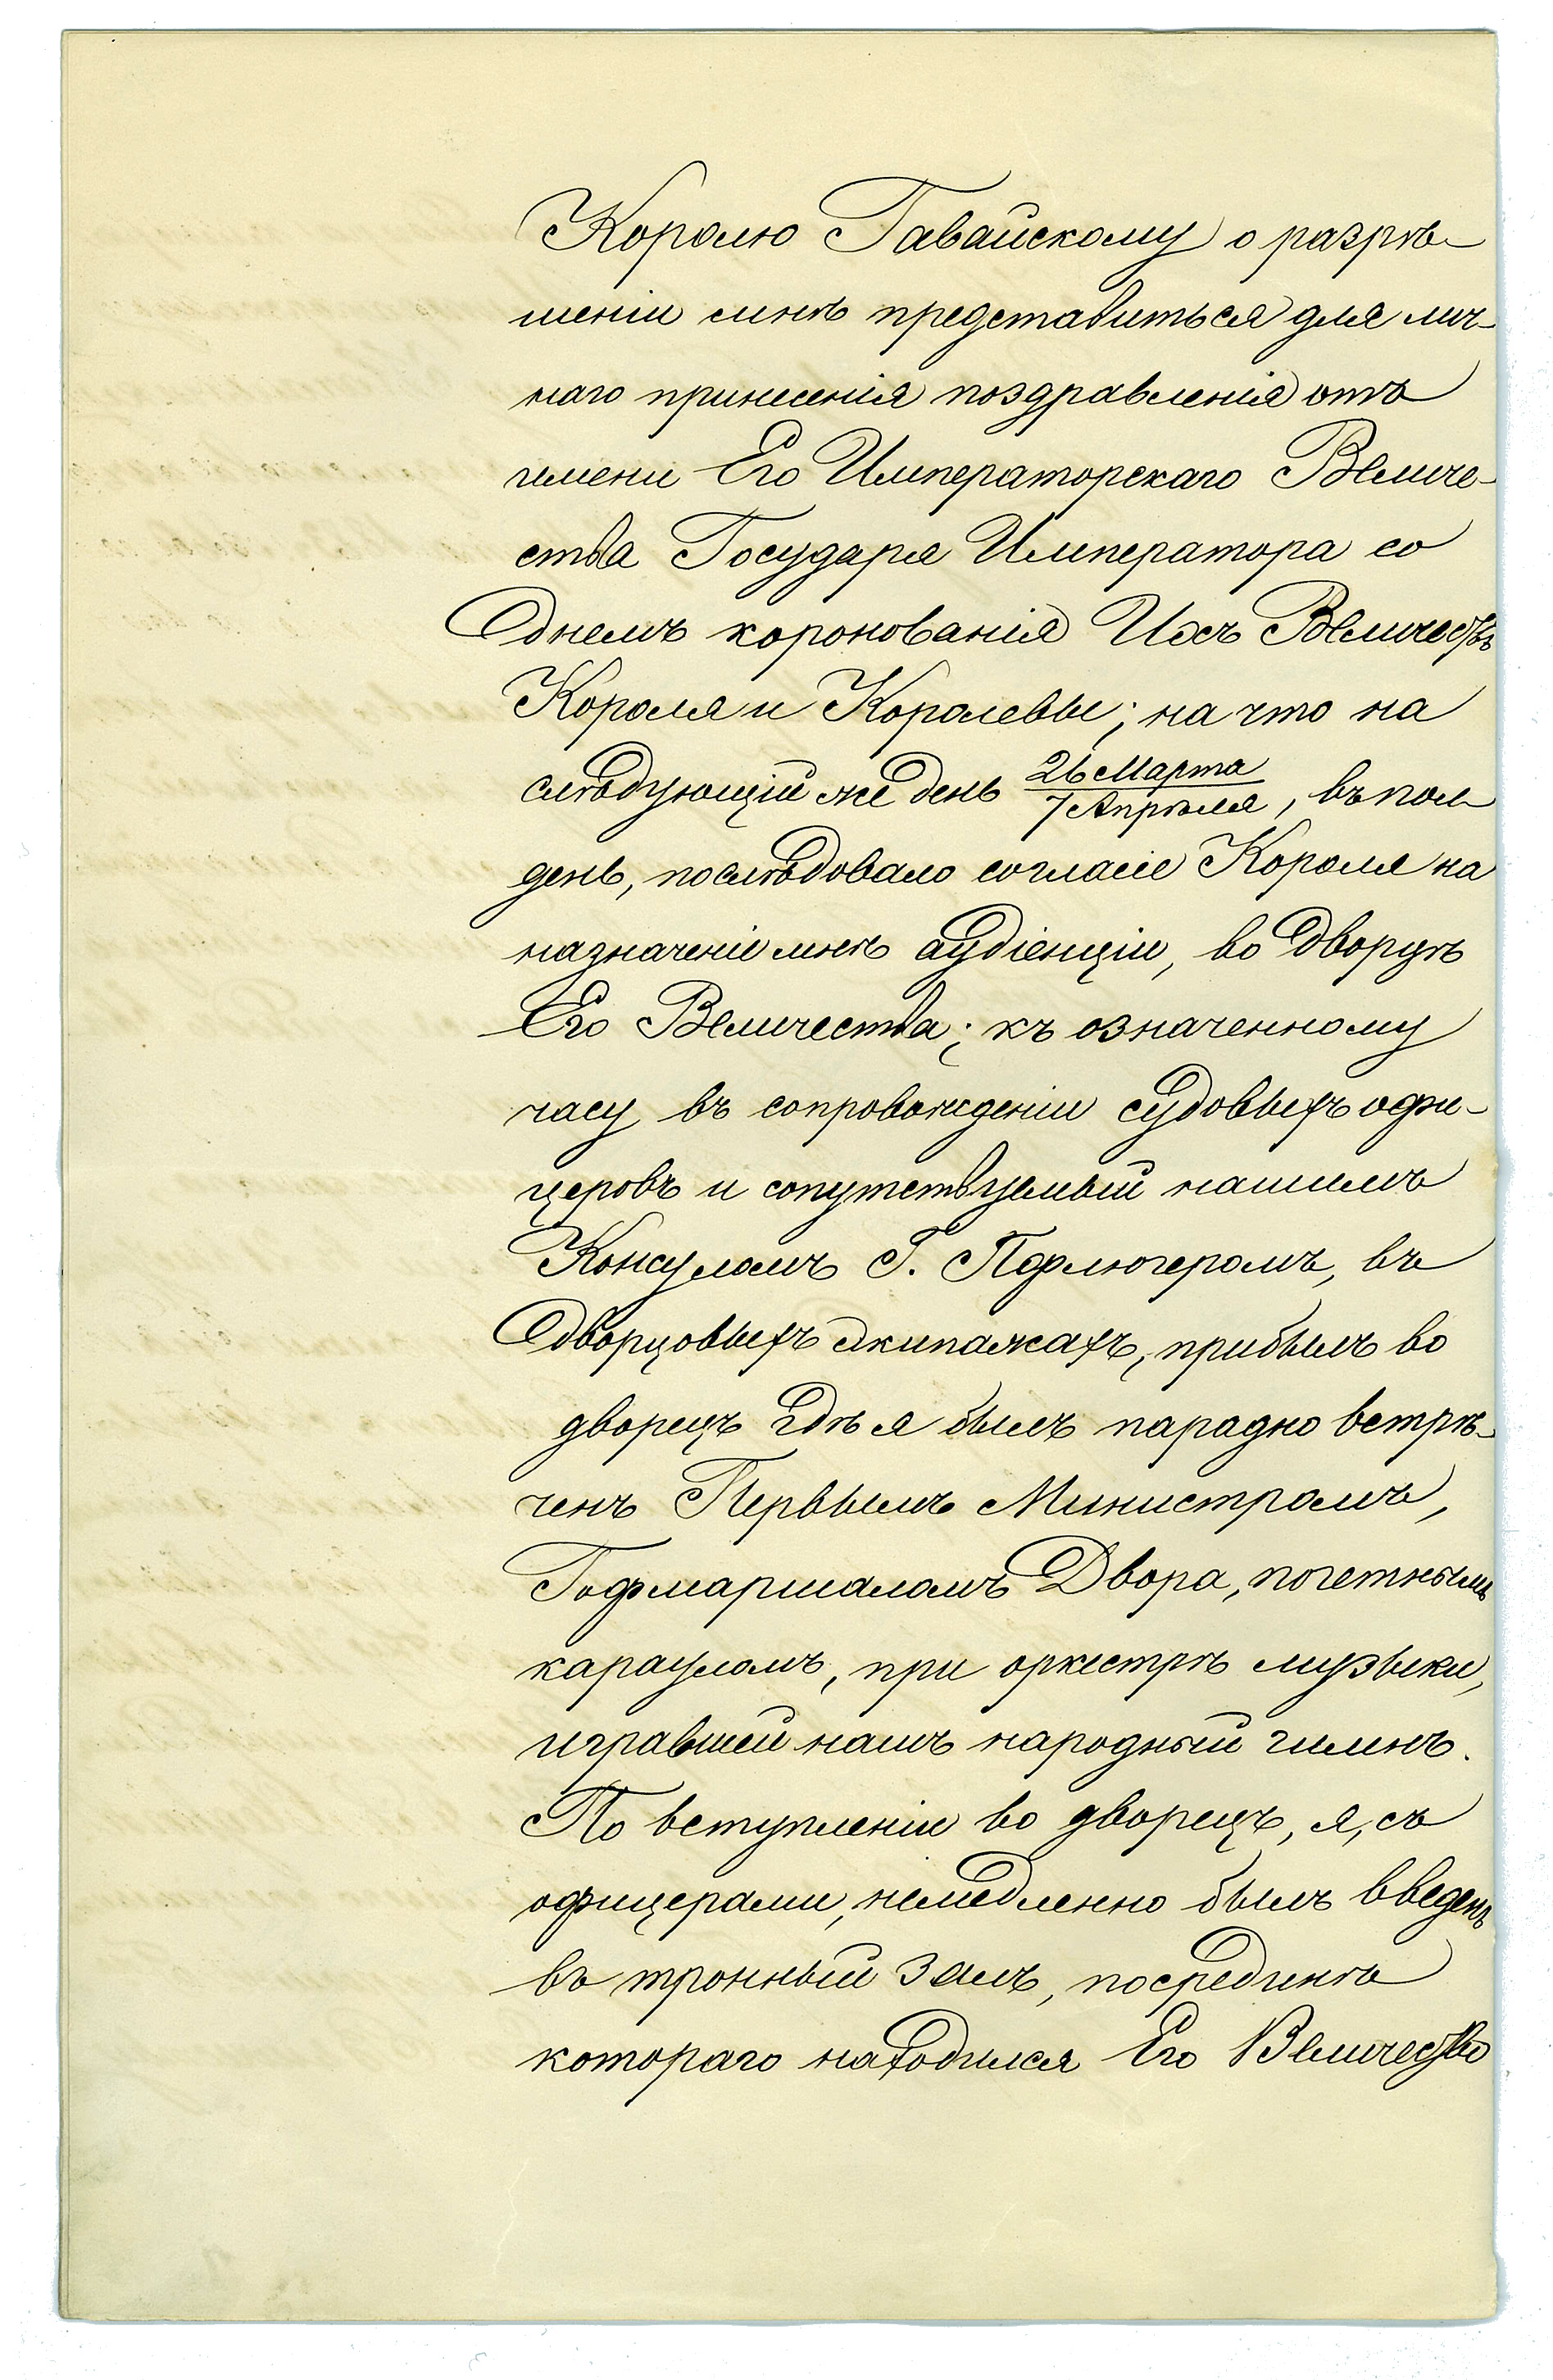 Королю Гавайскому о разрѣ-
шеніи мнѣ представиться для лич-
наго принесенія поздравленія отъ
имени Его Императорскаго Величе-
ства Государя Императора со
днемъ коронованія Ихъ Величествъ
Короля и Королевы; на что на
слѣдующій же день 26 Марта / 7 Апрѣля, въ пол-
день, послѣдовало согласіе Короля на
назначеніе мнѣ аудіенціи, во дворцѣ
Его Величества; къ означенному
часу въ сопровожденіи судовыхъ офи-
церовъ и сопутствуемый нашимъ
Консуломъ Г. Пфлюгеромъ, въ
дворцовыхъ экипажахъ, прибылъ во
дворецъ гдѣ я былъ парадно встрѣ-
ченъ Первымъ Министромъ,
Гофмаршаломъ Двора, почетнымъ
карауломъ, при оркестрѣ музыки,
игравшей нашъ народный гимнъ.
По вступленіи во дворецъ, я, съ
офицерами, немедленно былъ введенъ
въ тронный залъ, посрединѣ
котораго находился Его Величество